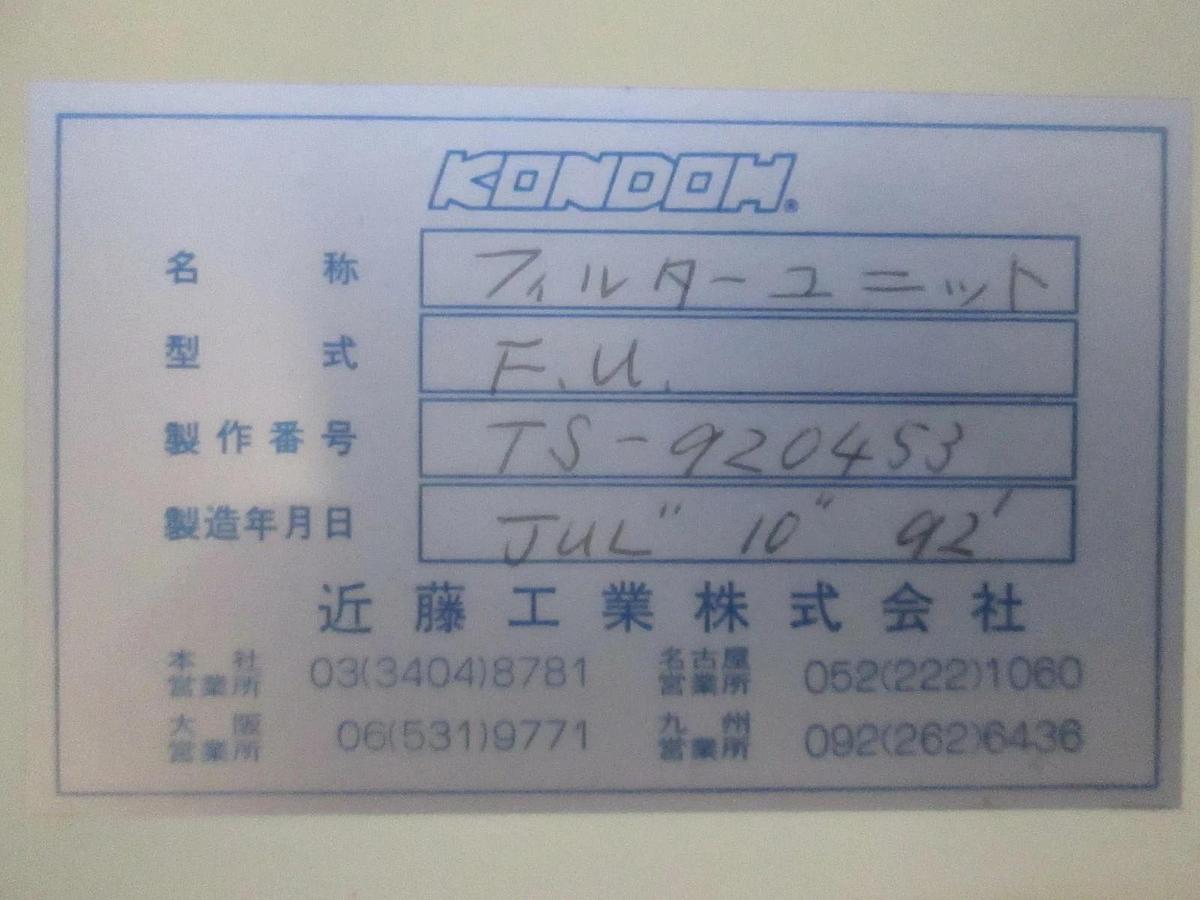 KONDOH®
名称 フィルターユニット
型式 F.U.
製作番号 TS-920453
製造年月日 JUL" 10" 92'
近藤工業株式会社
本社営業所 03(3404)8781 名古屋営業所 052(222)1060
大阪営業所 06(531)9771 九州営業所 092(262)6436